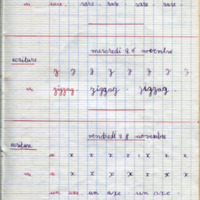 m rare. rare. rare. rare.
mercredi 26 novembre
écriture
z z z z z z z
m zigzag. zigzag. zigzag.
vendredi 28 novembre
écriture
m x x x x x x x
un axe. un axe. un axe.